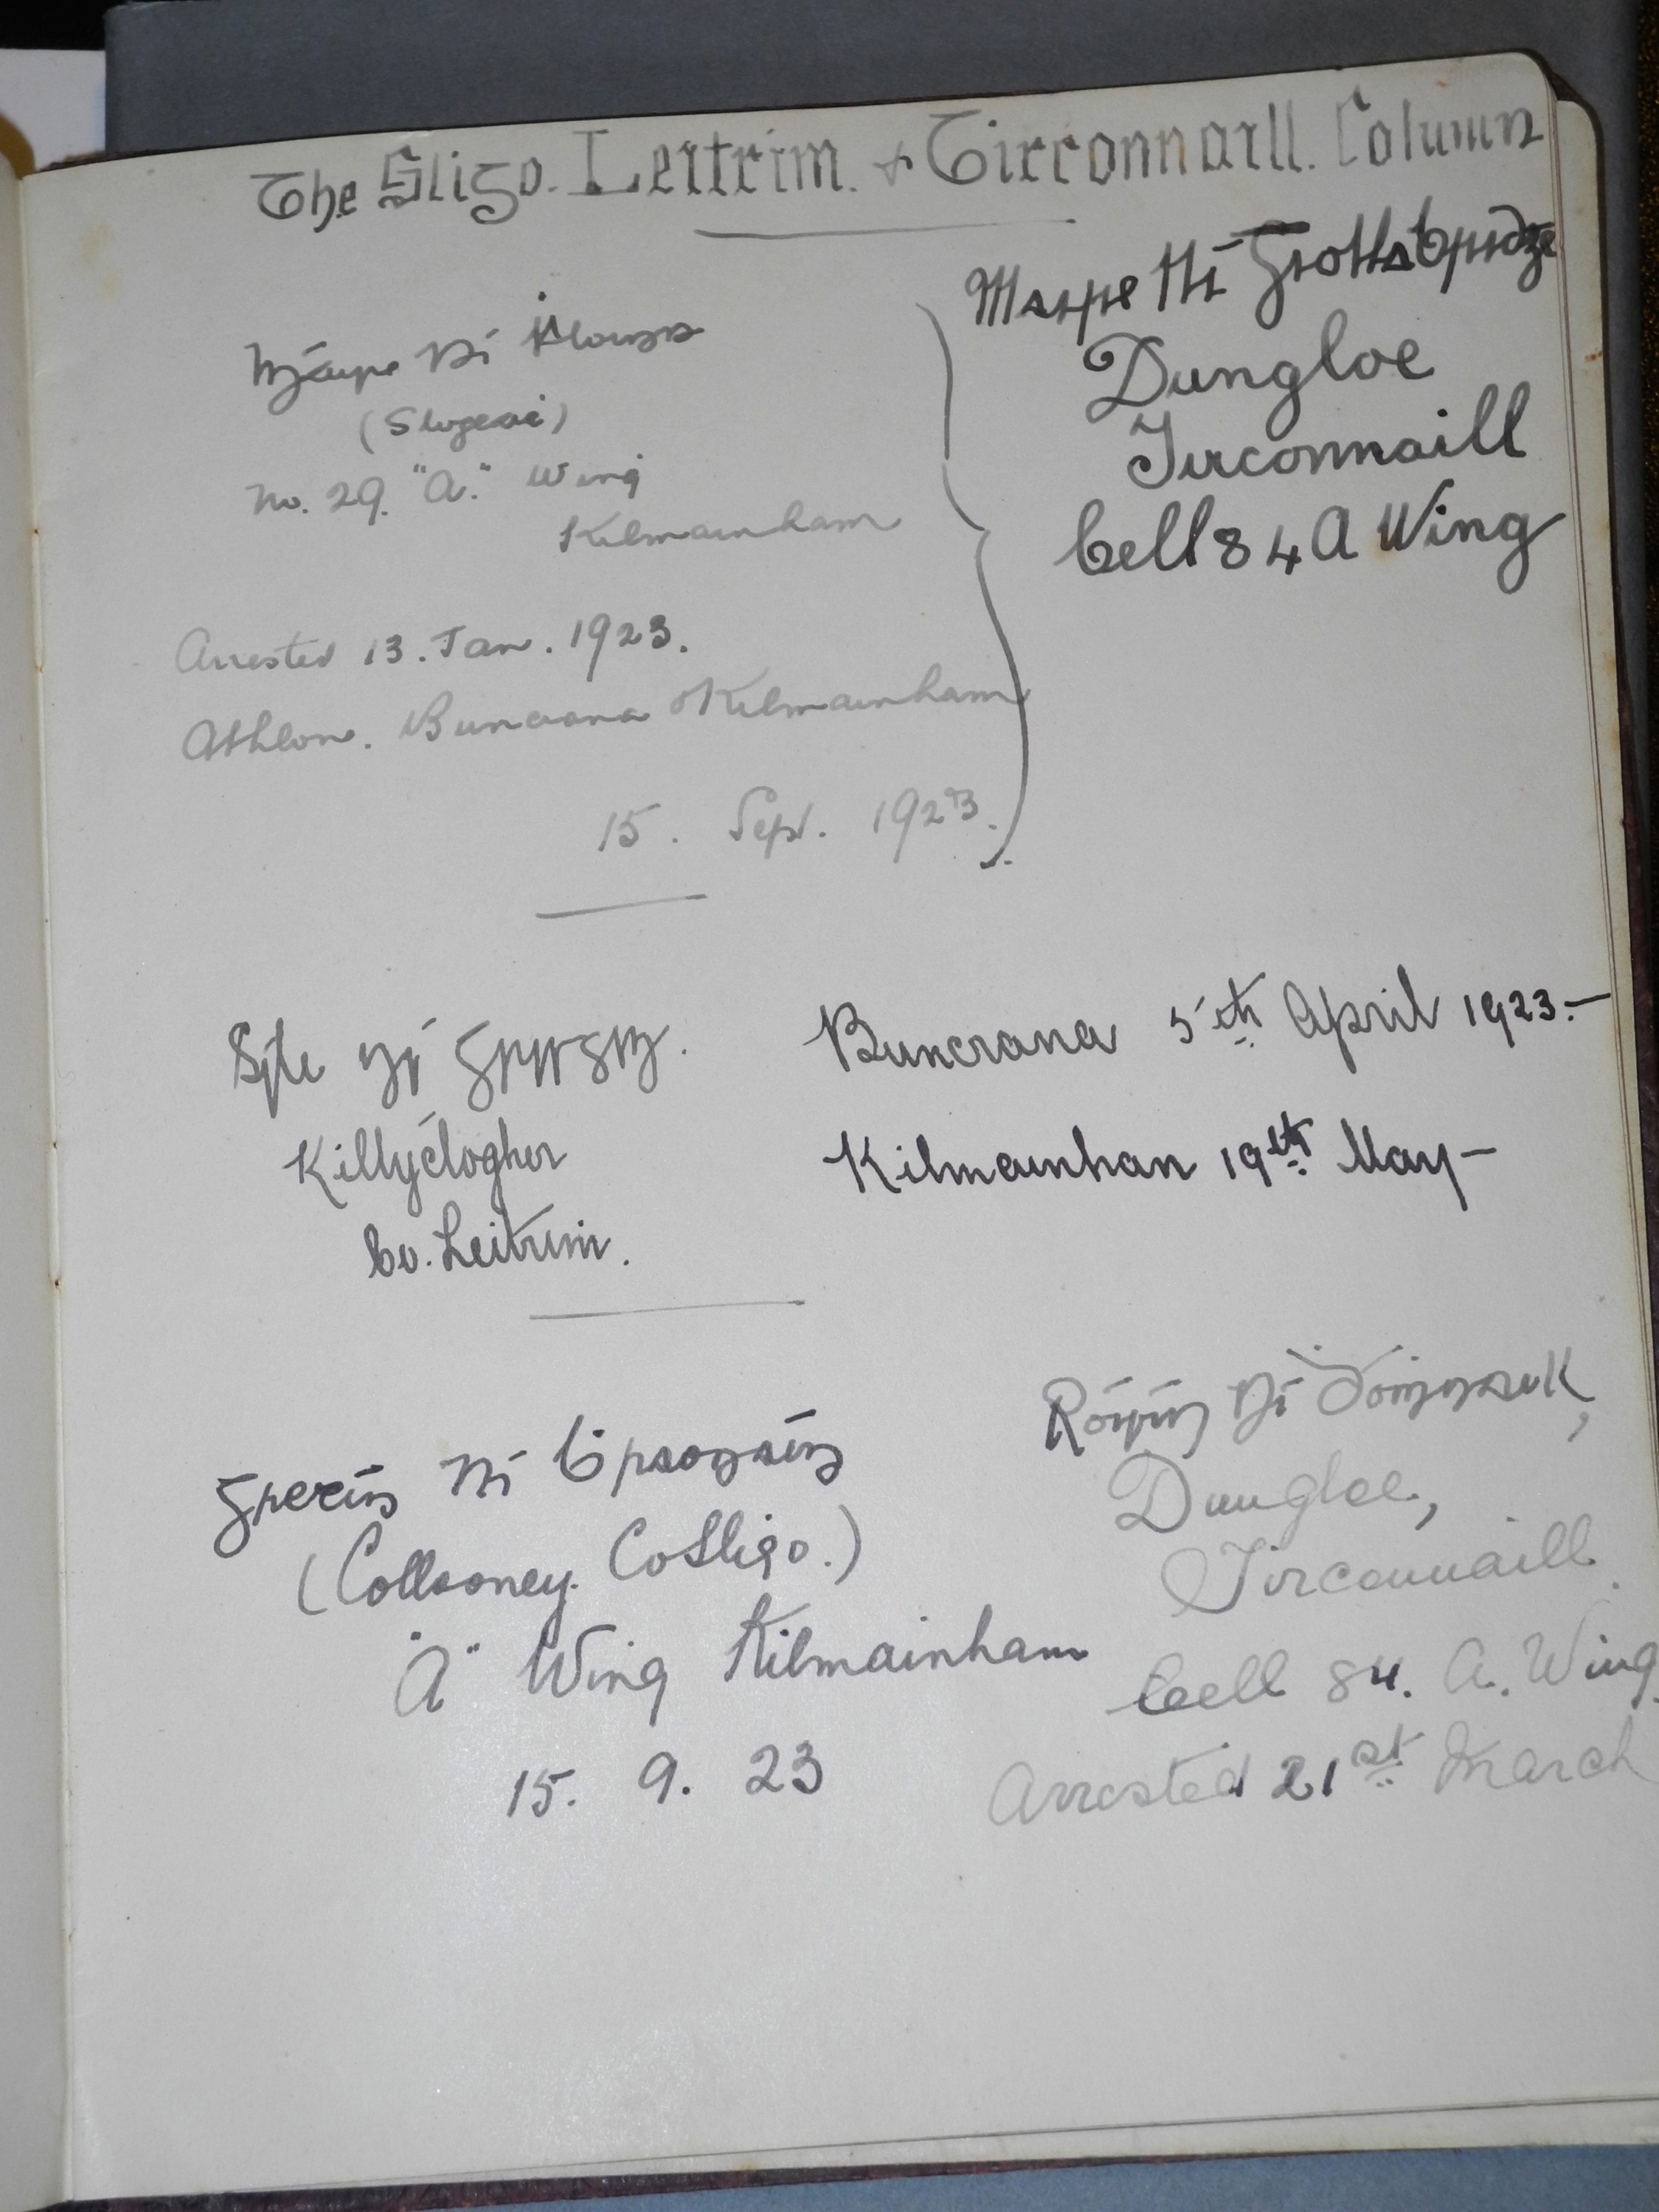 The Sligo. Leitrim. & Tirconnaill. Column
Máire Ní
(Sligeac)
No. 29. "A." Wing
Kilmainham
Arrested 13. Jan. 1923.
Athlone. Buncrana Kilmainham
15. Sept. 1923.
Maire Ní
Dungloe
Tirconnaill
Cell 84 A Wing
Site ní
Killyclogher
Co. Leitrim.
Buncrana 5th April 1923.—
Kilmainhan 19th May—
Ní
(Collooney. Co Sligo.)
"A" Wing Kilmainham
15. 9. 23
Róisín Ní
Dungloe,
Tirconnaill.
Cell 84. A. Wing.
Arrested 21st March